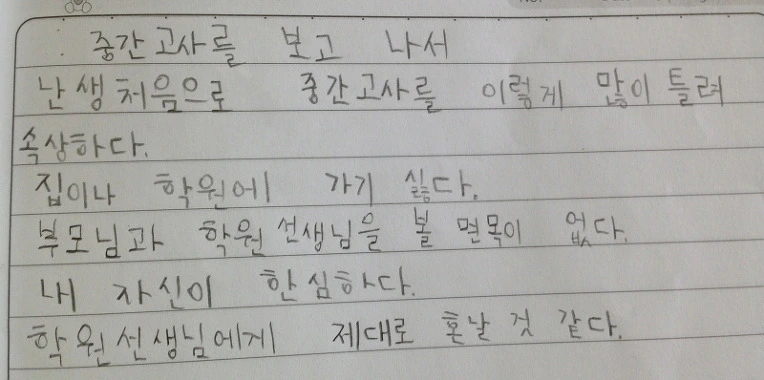 중간고사를 보고 나서
난생처음으로 중간고사를 이렇게 많이 틀려
속상하다.
집이나 학원에 가기 싫다.
부모님과 학원선생님을 볼 면목이 없다.
내 자신이 한심하다.
학원선생님에게 제대로 혼날 것 같다.